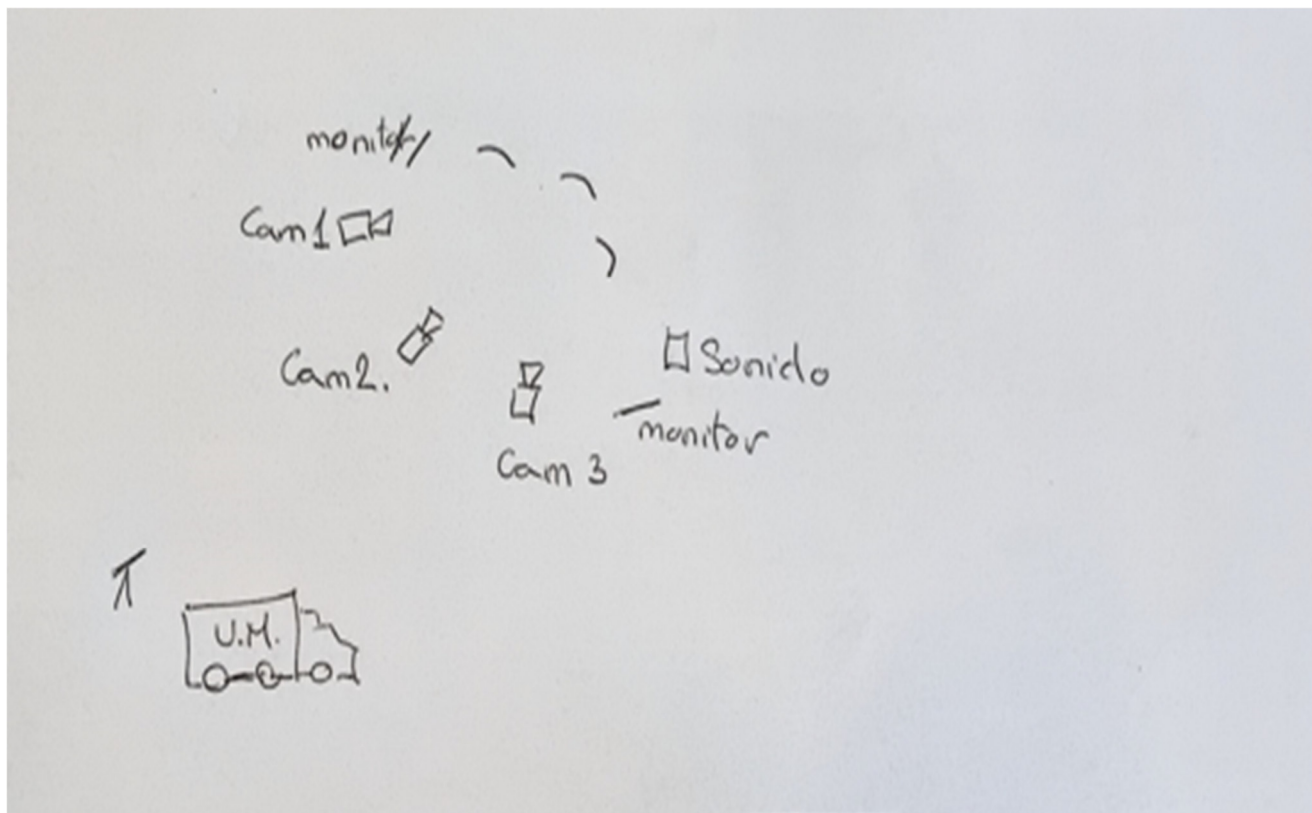 monitor
Cam 1
Cam 2.
Sonido
monitor
Cam 3
U.M.